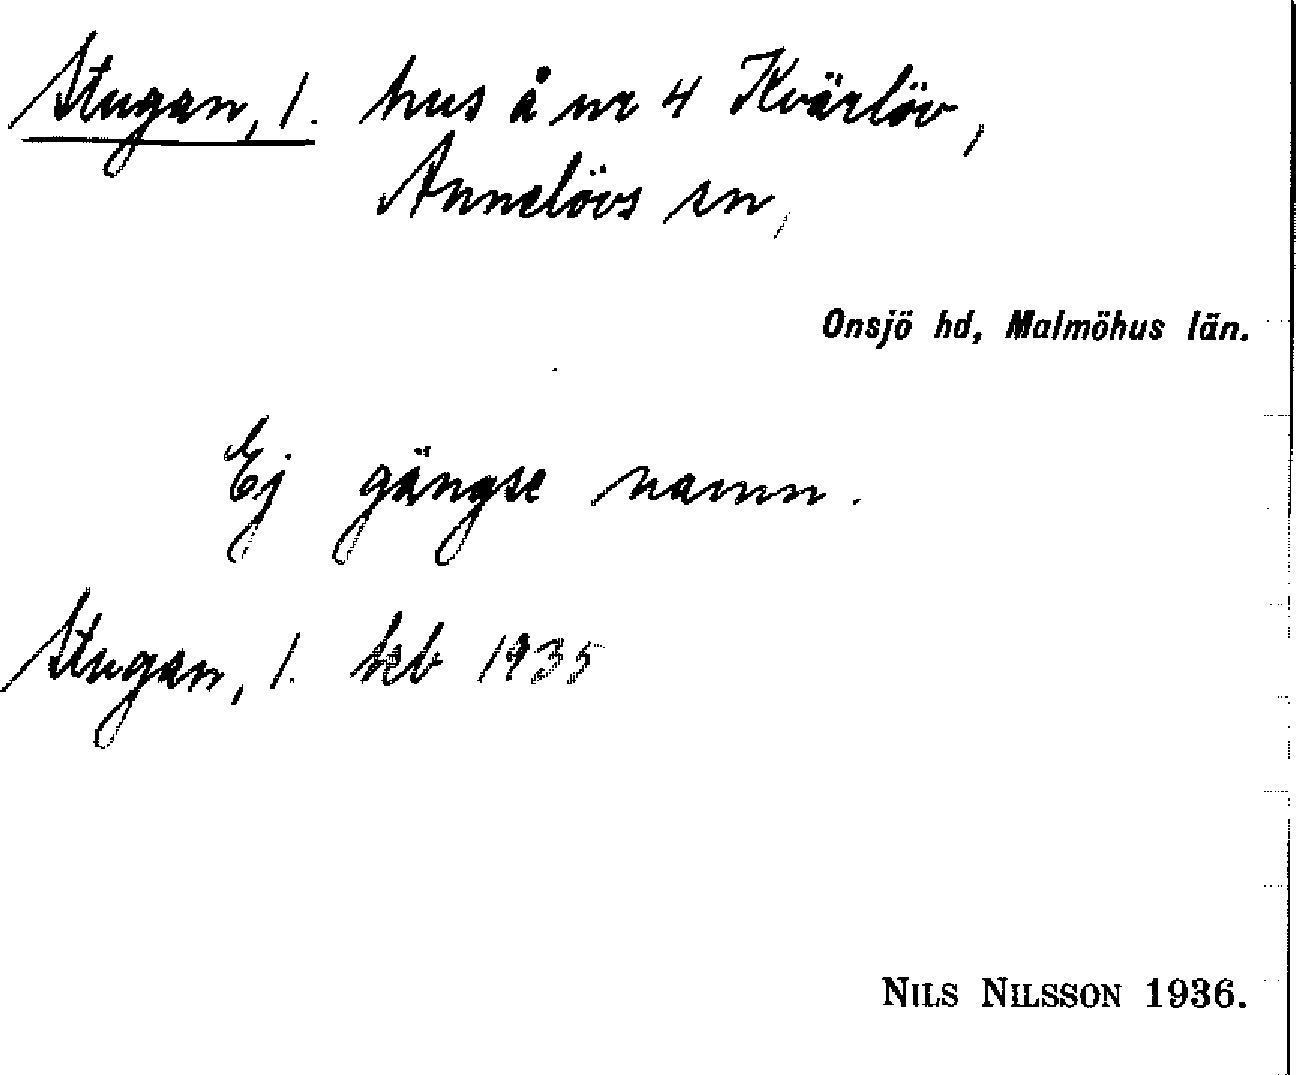 Stugan, 1. hus å nr 4 Kvärlöv,
Annelövs sn,
Onsjö hd, Malmöhus län.
Ej gängse namn.
Stugan, 1. kb 1935
NILS NILSSON 1936.